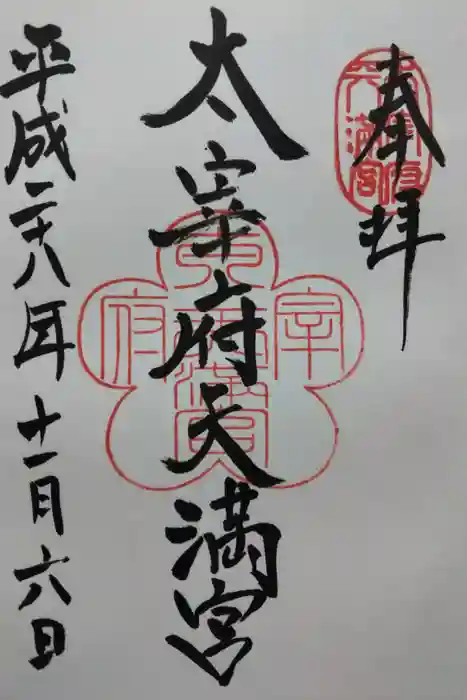 奉拝
太宰府天満宮
平成二十八年十一月六日